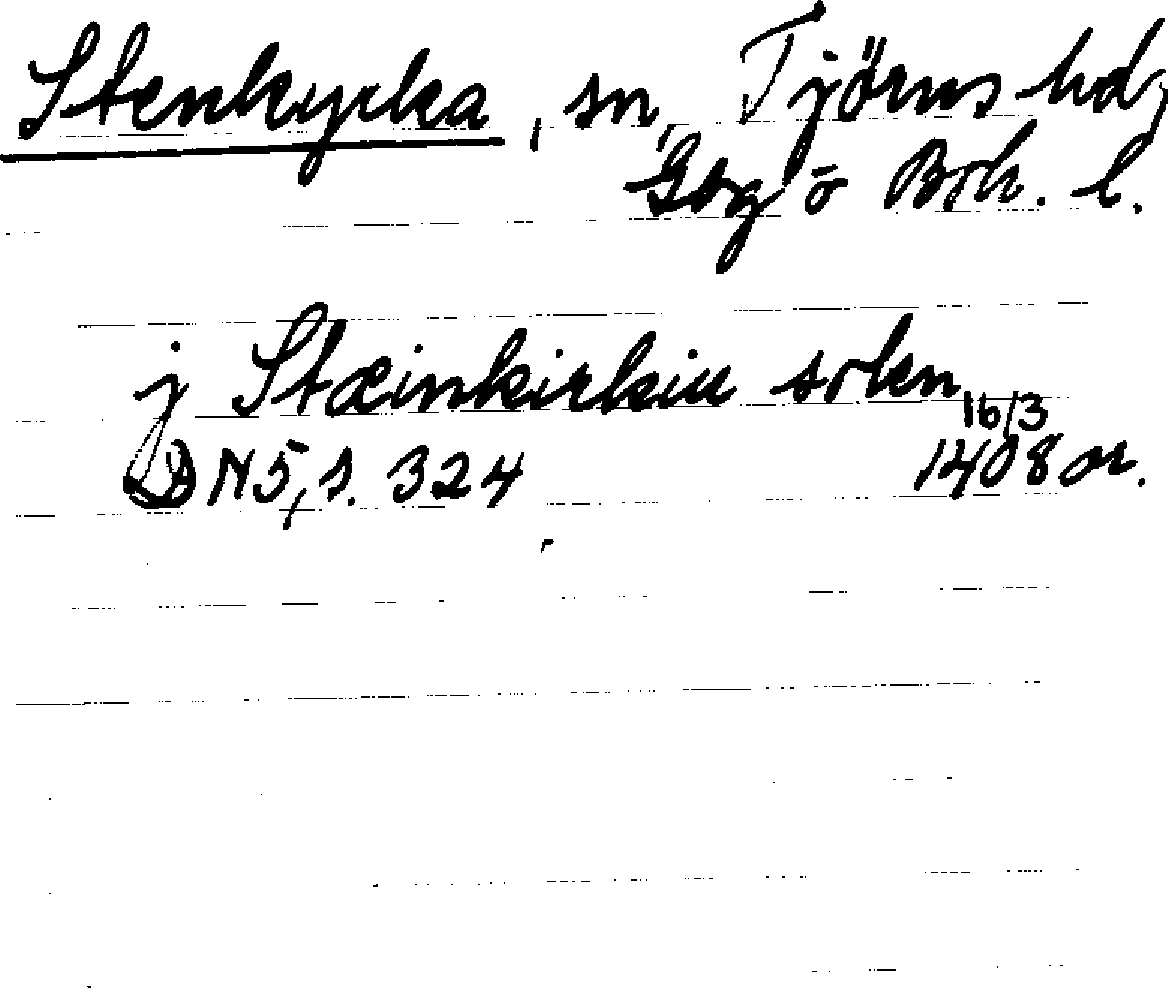 Stenkyrka, sn, Tjörns hd,
Gbg o Boh. l.
j Stæinkirkiu sokn
16/3
DN 5, s. 324 1408 or.